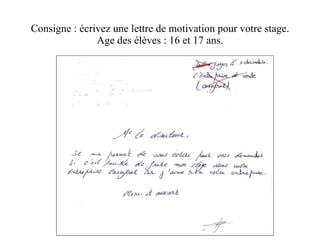 Consigne : écrivez une lettre de motivation pour votre stage.
Age des élèves : 16 et 17 ans.
le 5 décembre.
l'entreprise de vente
(carrefour)
Mr le directeur,
Je me permet de vous écrire pour vous demander
si c'est possible de faire mon stage dans votre
entreprise car j'aime bien votre entreprise.
Merci et aurevoir